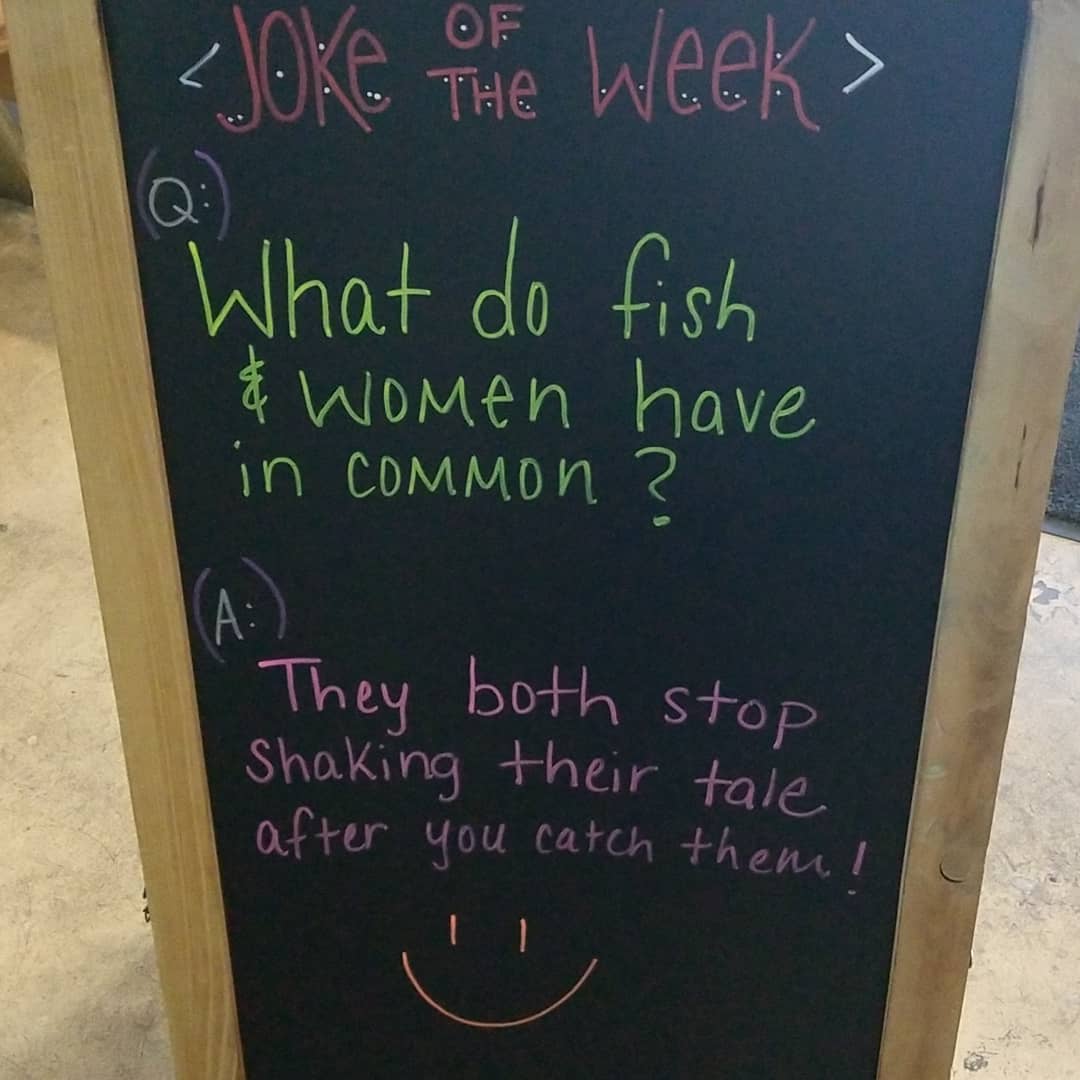 < JOKe OF THe Week >
(Q:)
What do fish
& women have
in common ?
(A:)
They both stop
shaking their tale
after you catch them!